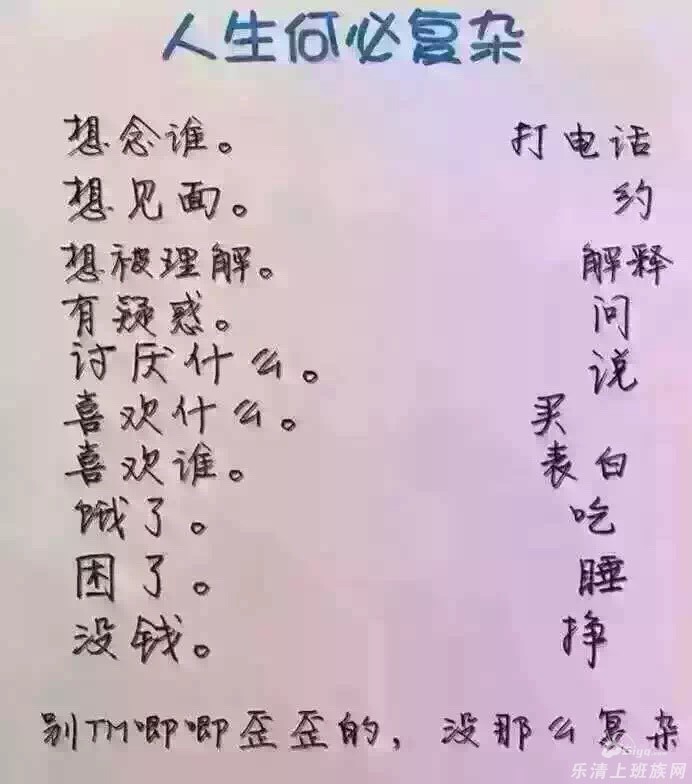 人生何必复杂
想念谁。 打电话
想见面。 约
想被理解。 解释
有疑惑。 问
讨厌什么。 说
喜欢什么。 买
喜欢谁。 表白
饿了。 吃
困了。 睡
没钱。 挣
别TM唧唧歪歪的，没那么复杂
乐清上班族网